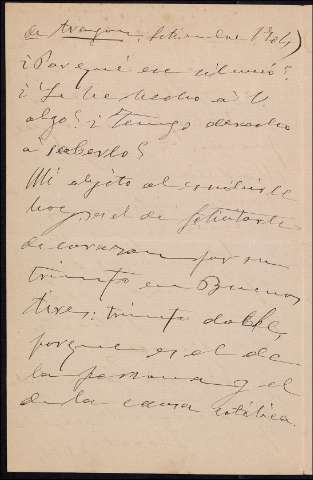 de Aragon, Setiembre 1904)
¿Por qué ese silencio?
¿Le he hecho a V.
algo? ¿Tengo derecho
a saberlo?
Mi objeto al escribirle
hoy, es el de felicitarle
de corazon por su
triunfo en Buenos
Aires: triunfo doble,
porque es el de
la persona y el
de la causa católica.